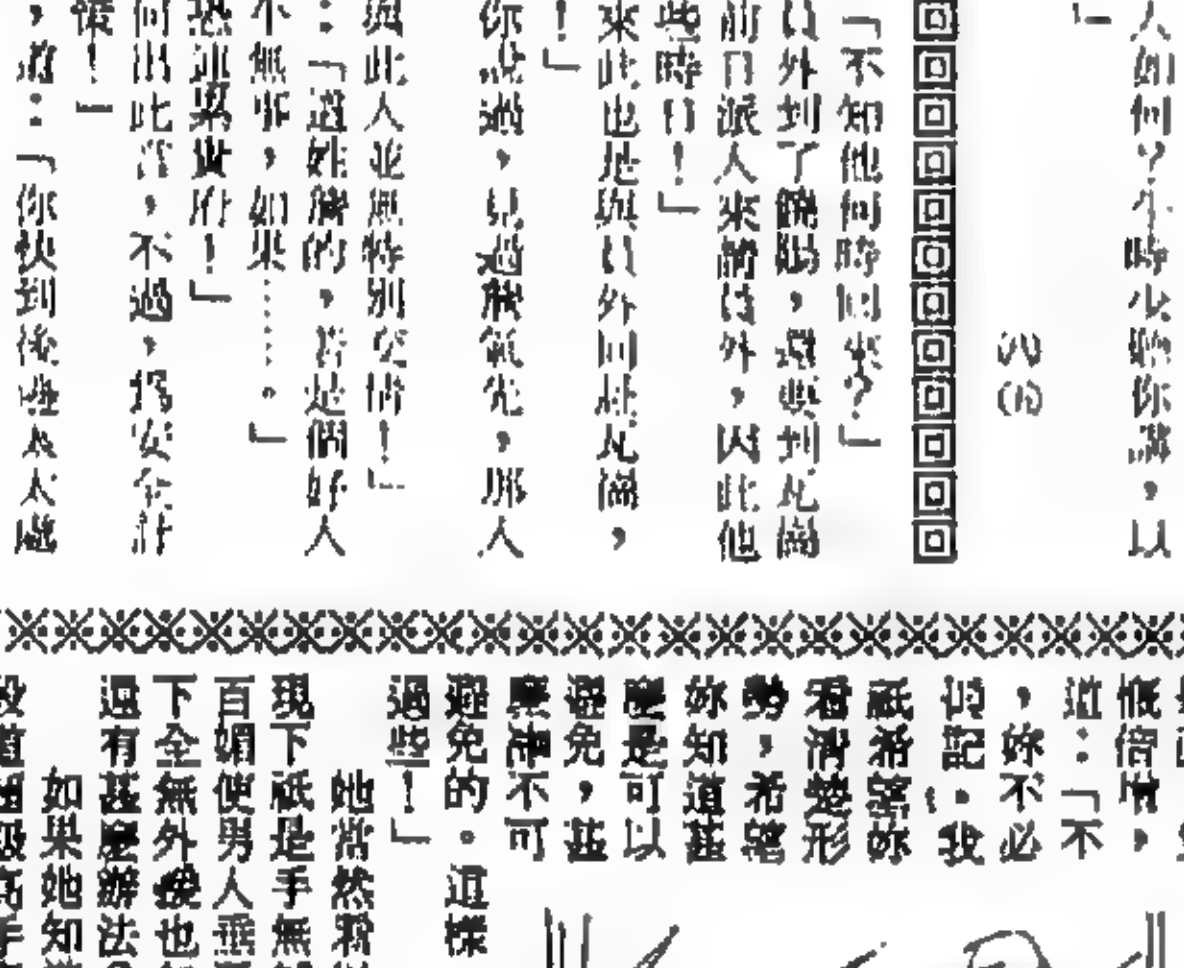 人如何？小時少聽你講，以
」
(八八)
「不知他何時回來？」
員外到了饒陽，還要到瓦崗
前日派人來請員外，因此他
些時日！」
來此也是與員外同赴瓦崗，
！」
你說過，見過解氣先，那人
與此人並無特別交情！」
：「這姓解的，若是個好人
不無事，如果……。」
恐連累貴府！」
何出此言，不過，為安全計
策！」
，道：「你快到後進太太處
慨倍增，
道：「不
，妳不必
仍記。我
祇希望妳
看清楚形
勢，希望
妳知道甚
麼是可以
避免，甚
麼神不可
避免的。這樣
過些！」
她當然
現下祇是手無
百媚使男人垂
下全無外援也
還有甚麼辦法
如果她知